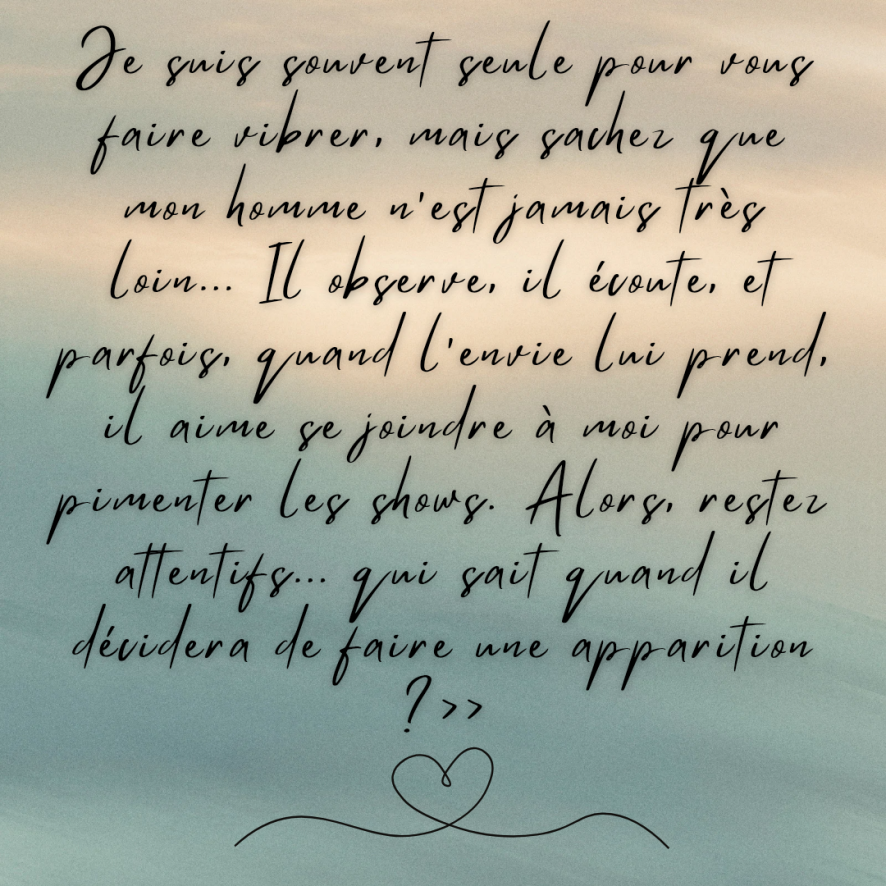 Je suis souvent seule pour vous
faire vibrer, mais sachez que
mon homme n'est jamais très
loin... Il observe, il écoute, et
parfois, quand l'envie lui prend,
il aime se joindre à moi pour
pimenter les shows. Alors, restez
attentifs... qui sait quand il
décidera de faire une apparition
? >>